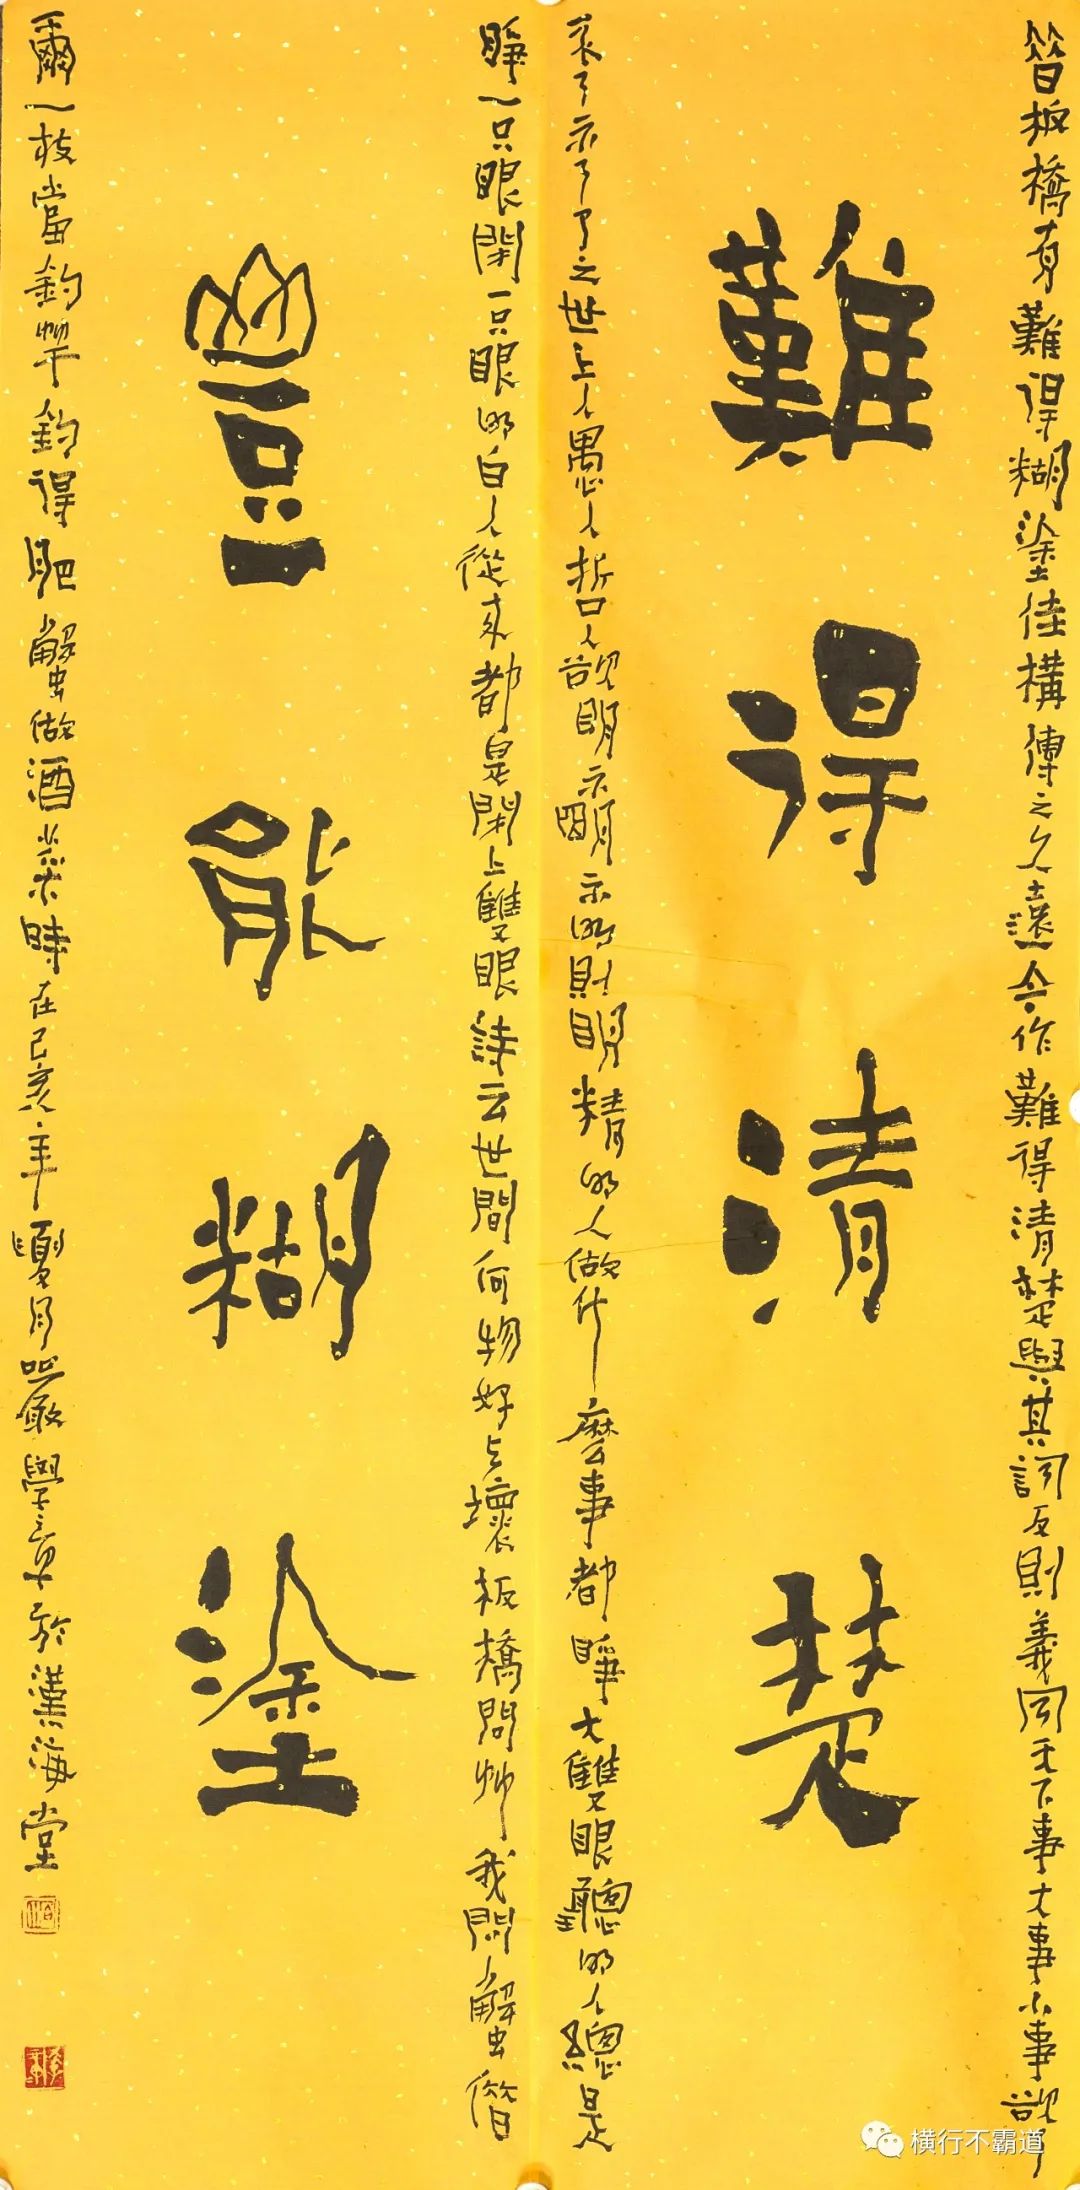 昝板橋有難得糊塗佳構傳之久遠今作難得清楚與其詞反則義同天下事大事小事欲了
難得清楚
未了亦了了之世上人愚人哲人欲明示明示的財眼精的人做什麼事都睜大雙眼聽的人總是
睜一只眼閉一只眼的白人從來都是閉上雙眼詩云世間何物好与壞板橋問竹我問蟹借
豈能糊塗
爾一枝當釣竿釣得肥蟹做酒菜時在己亥年夏月嚴學章於漢海堂
横行不霸道